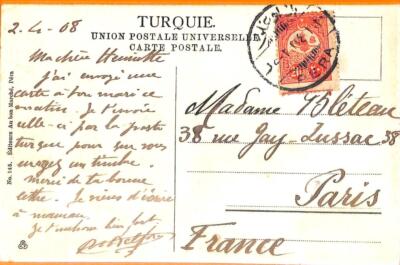 TURQUIE.
UNION POSTALE UNIVERSELLE
CARTE POSTALE.
2-4-08
Ma chère Henriette
j'ai envoyé une
carte à ton mari ce
matin. Je t'envoie
celle-ci par la poste
turque pour que vous
ayez un timbre.
merci de ta bonne
lettre. Je viens d'écrire
à maman
Je t'embrasse bien fort
Madame Bléteau
38 rue Gay-Lussac 38
Paris
France
PERA
No. 145. Editeurs Au bon Marché, Péra